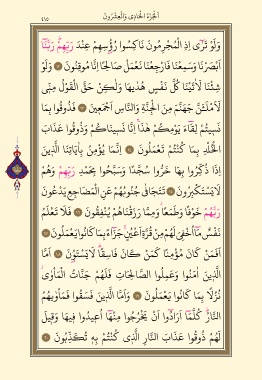 اَلْجُزْءُ الْحَادِي وَالْعِشْرُونَ
٤١٥
وَلَوْ تَرٰٓى اِذِ الْمُجْرِمُونَ نَاكِسُوا رُؤُ۫سِهِمْ عِنْدَ رَبِّهِمْۜ رَبَّنَٓا
اَبْصَرْنَا وَسَمِعْنَا فَارْجِعْنَا نَعْمَلْ صَالِحًا اِنَّا مُوقِنُونَ ۝ وَلَوْ
شِئْنَا لَاٰتَيْنَا كُلَّ نَفْسٍ هُدٰيهَا وَلٰكِنْ حَقَّ الْقَوْلُ مِنّ۪ي
لَاَمْلَـَٔنَّ جَهَنَّمَ مِنَ الْجِنَّةِ وَالنَّاسِ اَجْمَع۪ينَ ۝ فَذُوقُوا بِمَا
نَس۪يتُمْ لِقَٓاءَ يَوْمِكُمْ هٰذَاۚ اِنَّا نَس۪ينَاكُمْ وَذُوقُوا عَذَابَ
الْخُلْدِ بِمَا كُنْتُمْ تَعْمَلُونَ ۝ اِنَّمَا يُؤْمِنُ بِاٰيَاتِنَا الَّذ۪ينَ
اِذَا ذُكِّرُوا بِهَا خَرُّوا سُجَّدًا وَسَبَّحُوا بِحَمْدِ رَبِّهِمْ وَهُمْ
لَا يَسْتَكْبِرُونَ ۝ تَتَجَافٰى جُنُوبُهُمْ عَنِ الْمَضَاجِعِ يَدْعُونَ
رَبَّهُمْ خَوْفًا وَطَمَعًاۘ وَمِمَّا رَزَقْنَاهُمْ يُنْفِقُونَ ۝ فَلَا تَعْلَمُ
نَفْسٌ مَٓا اُخْفِيَ لَهُمْ مِنْ قُرَّةِ اَعْيُنٍۚ جَزَٓاءً بِمَا كَانُوا يَعْمَلُونَ ۝
اَفَمَنْ كَانَ مُؤْمِنًا كَمَنْ كَانَ فَاسِقًاۜ لَا يَسْتَوُ۫نَ ۝ اَمَّا
الَّذ۪ينَ اٰمَنُوا وَعَمِلُوا الصَّالِحَاتِ فَلَهُمْ جَنَّاتُ الْمَأْوٰىۘ
نُزُلًا بِمَا كَانُوا يَعْمَلُونَ ۝ وَاَمَّا الَّذ۪ينَ فَسَقُوا فَمَأْوٰيهُمُ
النَّارُۜ كُلَّمَٓا اَرَادُٓوا اَنْ يَخْرُجُوا مِنْهَٓا اُع۪يدُوا ف۪يهَا وَق۪يلَ
لَهُمْ ذُوقُوا عَذَابَ النَّارِ الَّذ۪ي كُنْتُمْ بِه۪ تُكَذِّبُونَ ۝